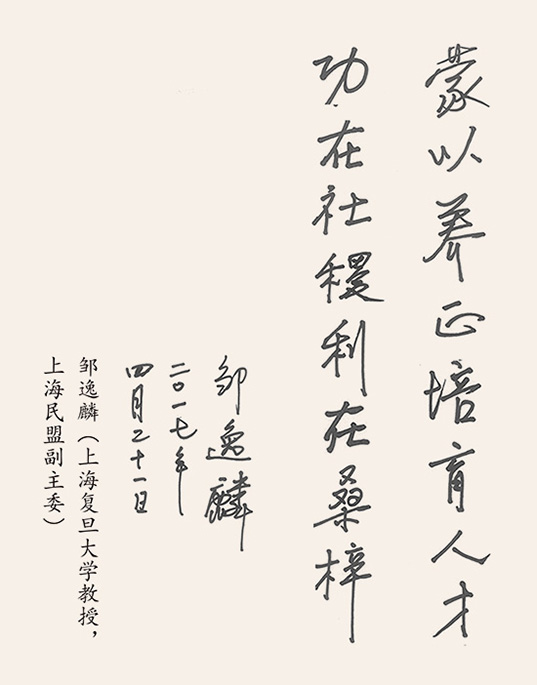 蒙以养正培育人才
功在社稷利在桑梓
邹逸麟
二〇一七年
四月二十一日
邹逸麟（上海复旦大学教授，
上海民盟副主委）